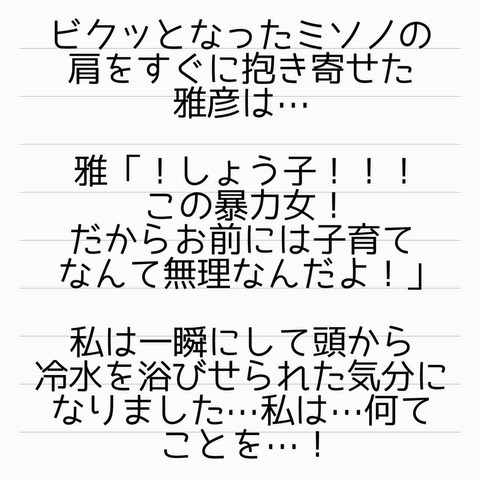 ビクッとなったミソノの
肩をすぐに抱き寄せた
雅彦は…
雅「！しょう子！！！
この暴力女！
だからお前には子育て
なんて無理なんだよ！」
私は一瞬にして頭から
冷水を浴びせられた気分に
なりました…私は…何て
ことを…！